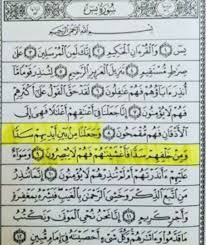 سورة يس
بسم الله الرحمن الرحيم
يس ۝ والقرءان الحكيم ۝ إنك لمن المرسلين ۝ على
صراط مستقيم ۝ تنزيل العزيز الرحيم ۝ لتنذر قوما ما
أنذر ءاباؤهم فهم غافلون ۝ لقد حق القول على أكثرهم
فهم لا يؤمنون ۝ إنا جعلنا في أعناقهم أغلالا فهي إلى
الأذقان فهم مقمحون ۝ وجعلنا من بين أيديهم سدا
ومن خلفهم سدا فأغشيناهم فهم لا يبصرون ۝ وسواء
عليهم ءأنذرتهم أم لم تنذرهم لا يؤمنون ۝ إنما تنذر
من اتبع الذكر وخشي الرحمن بالغيب فبشره بمغفرة و
أجر كريم ۝ إنا نحن نحي الموتى ونكتب
ما قدموا وءاثارهم وكل شيء أحصيناه في إمام مبين